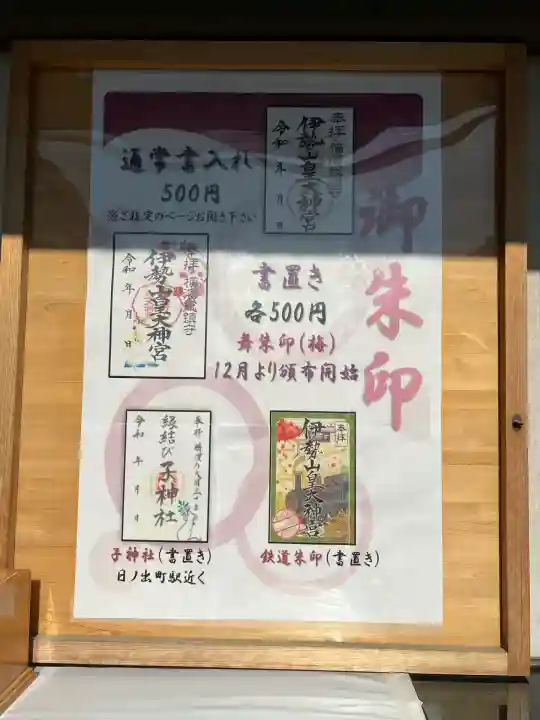 御朱印
奉拝
伊勢山皇大神宮
令和 年 月 日
通常書入れ
500円
※ご指定のページお開き下さい
奉拝 横濱総鎮守
伊勢山皇大神宮
令和 年 月 日
書置き
各500円
舞朱印(梅)
12月より頒布開始
奉拝
縁結び 子神社
令和 年 月 日
子神社(書置き)
日ノ出町駅近く
奉拝
伊勢山皇大神宮
鉄道朱印(書置き)